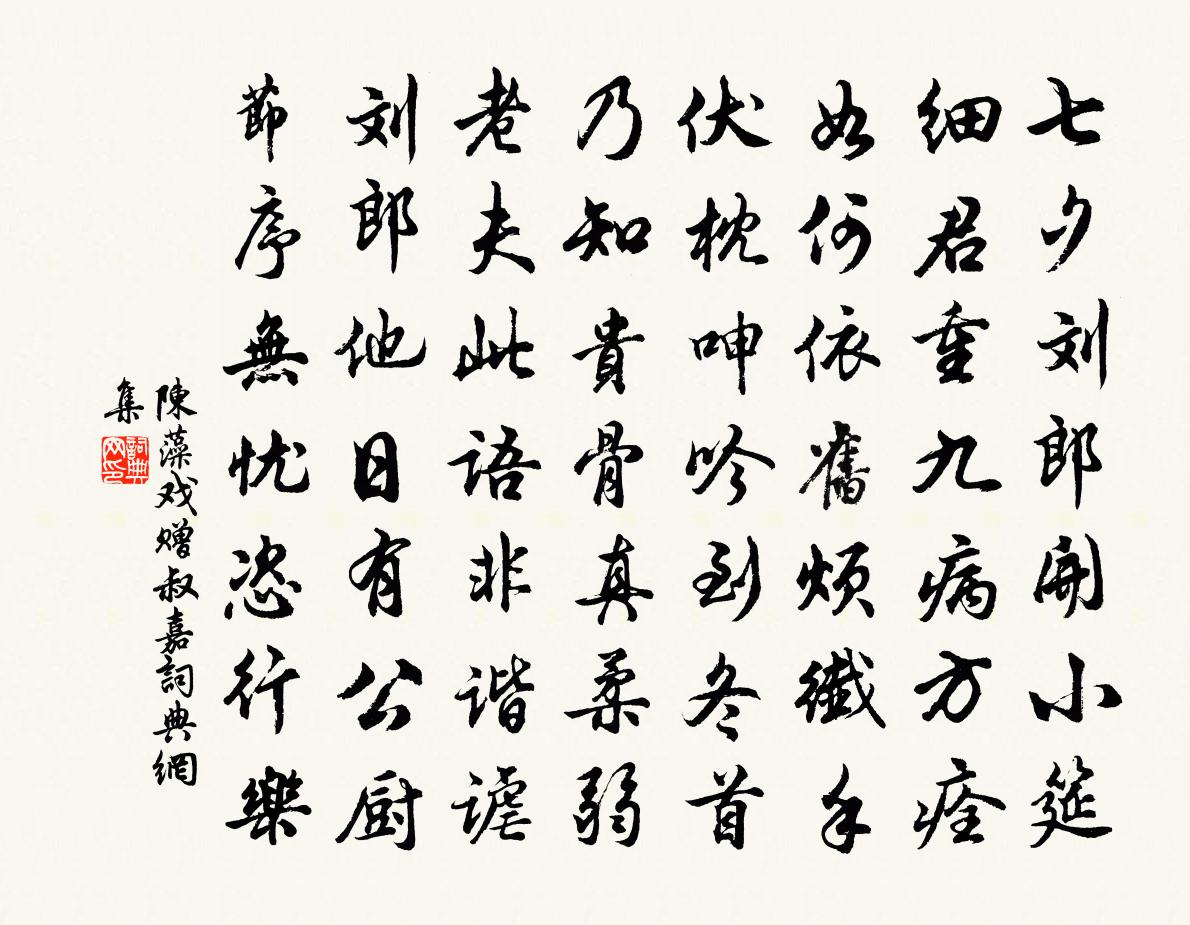 七夕刘郎開小筵
細君重九病方痊
如何依舊煩纖手
伏枕呻吟到冬首
乃知貴骨真柔弱
老夫此語非谐谑
刘郎他日有公厨
節序無忧恣行樂
陳藻戏赠叔嘉詞典網
集
詞典
网印